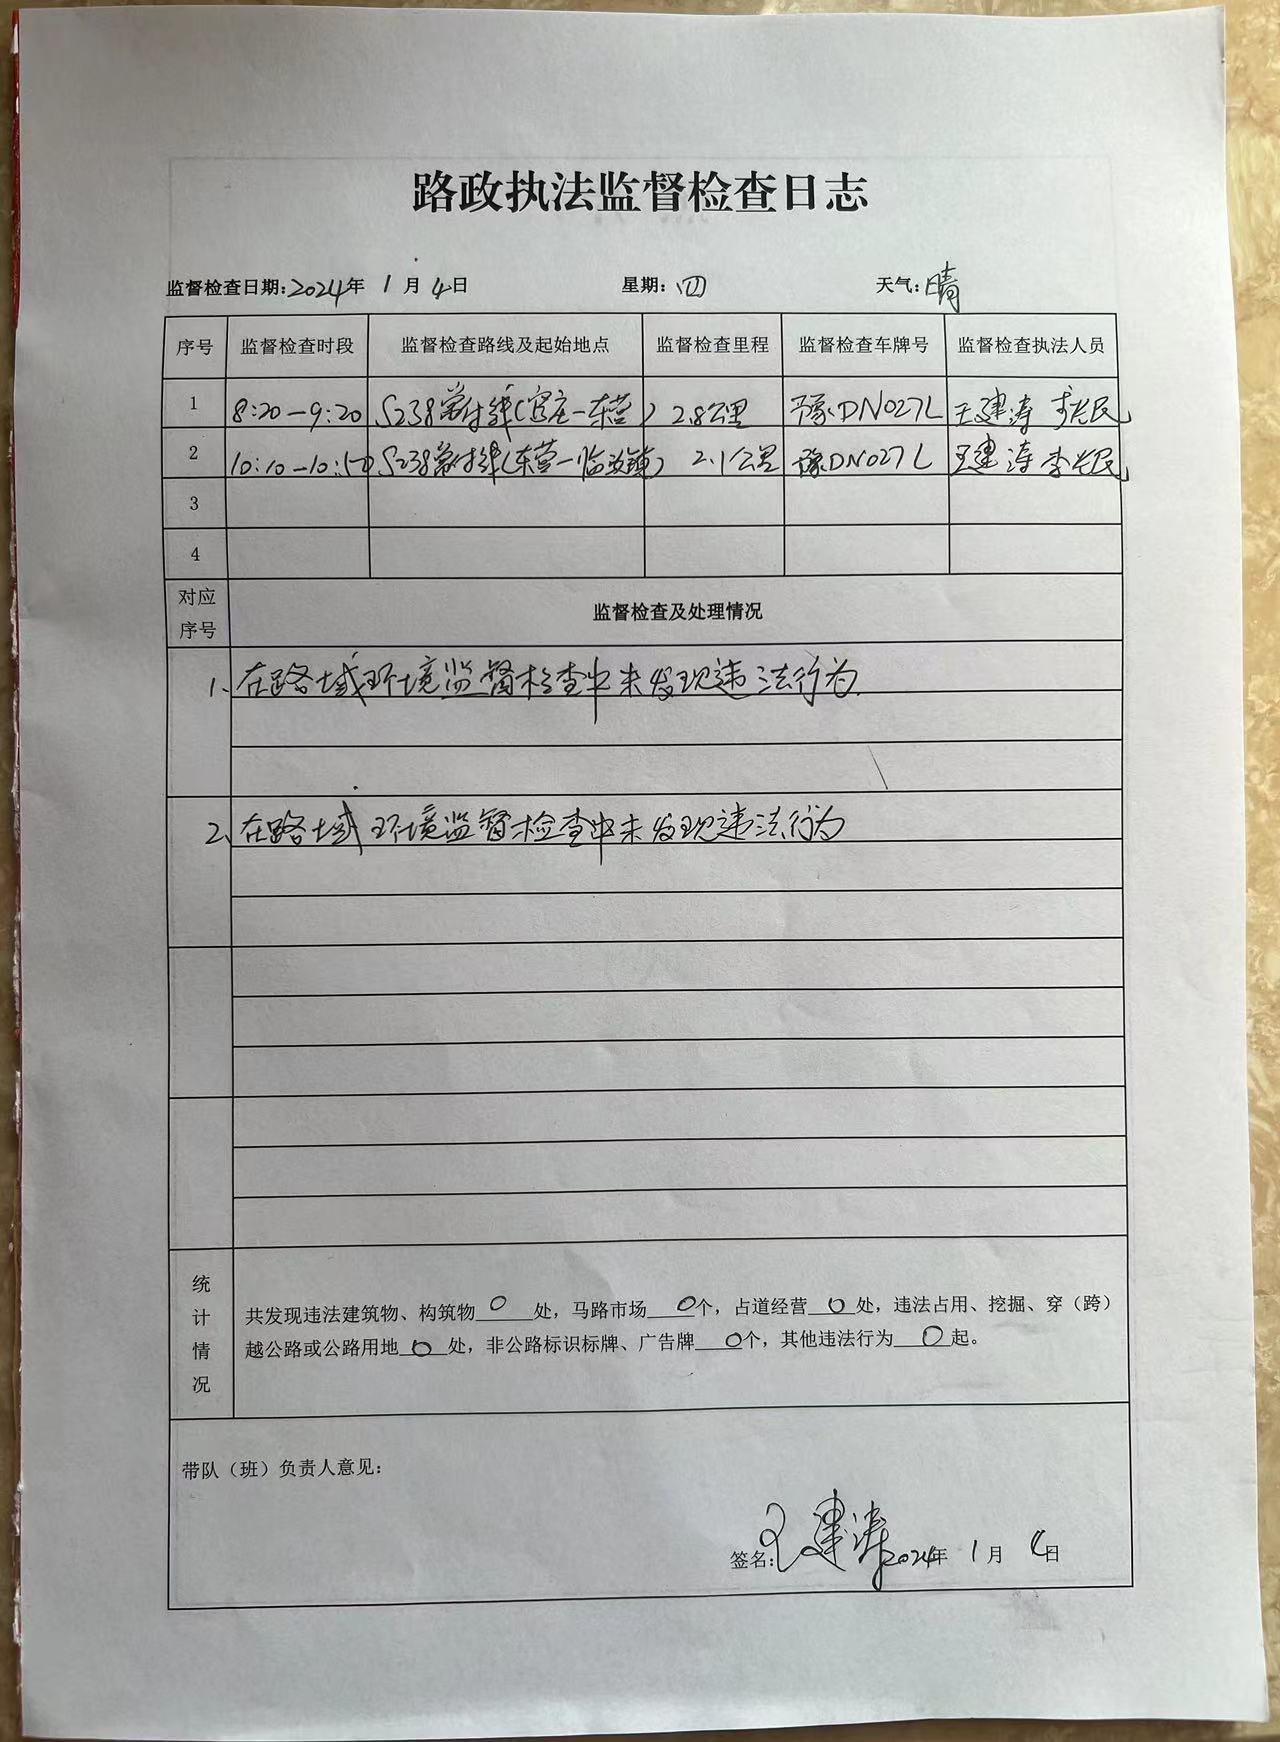 路政执法监督检查日志
监督检查日期:2024年 1月 4日 星期:四 天气:晴
序号 监督检查时段 监督检查路线及起始地点 监督检查里程 监督检查车牌号 监督检查执法人员
1 8:20—9:20 S238常付线(官庄—东营) 2.8公里 豫DN027L 王建涛 李长民
2 10:10—10:50 S238常付线(东营—临汝镇) 2.1公里 豫DN027L 王建涛 李长民
3
4
对应序号 监督检查及处理情况
1、在路域环境监督检查中未发现违法行为.
2、在路域环境监督检查中未发现违法行为
统计情况
共发现违法建筑物、构筑物 0 处，马路市场 0个，占道经营 0 处，违法占用、挖掘、穿（跨）
越公路或公路用地 0 处，非公路标识标牌、广告牌 0个，其他违法行为 0 起。
带队（班）负责人意见：
签名:王建涛 2024年 1月 4日